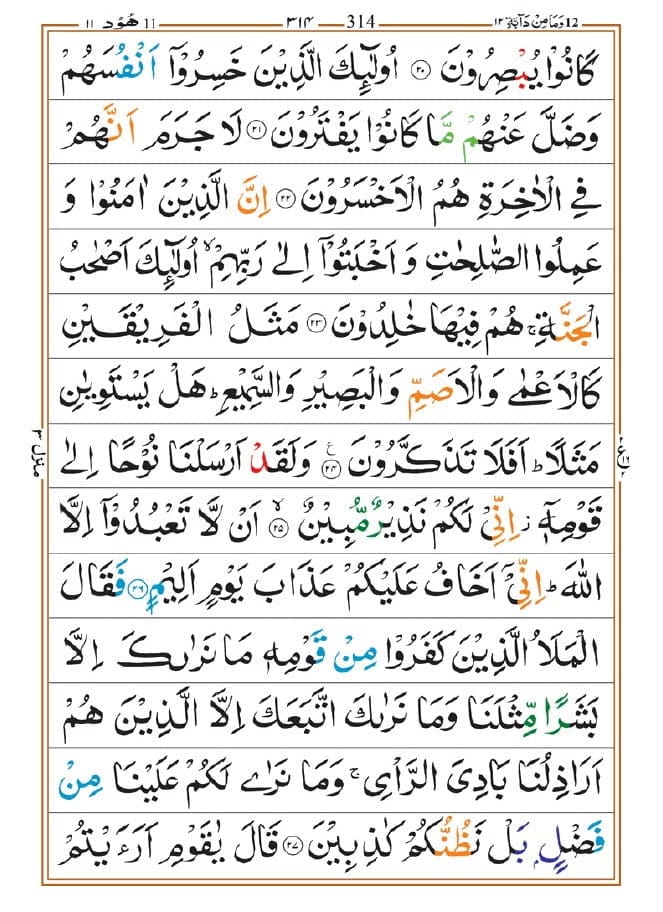 12 وَمَا مِنْ دَآبَّةٍ ١٢ 314 ٣١٤ 11 هُوْد ١١
كَانُوْا يُبْصِرُوْنَ ۲۰ اُولٰٓئِكَ الَّذِيْنَ خَسِرُوْۤا اَنْفُسَهُمْ
وَضَلَّ عَنْهُمْ مَّا كَانُوْا يَفْتَرُوْنَ ۲۱ لَا جَرَمَ اَنَّهُمْ
فِي الْاٰخِرَةِ هُمُ الْاَخْسَرُوْنَ ۲۲ اِنَّ الَّذِيْنَ اٰمَنُوْا وَ
عَمِلُوا الصّٰلِحٰتِ وَ اَخْبَتُوْۤا اِلٰى رَبِّهِمْ ۙ اُولٰٓئِكَ اَصْحٰبُ
الْجَنَّةِ ۚ هُمْ فِيْهَا خٰلِدُوْنَ ۲۳ مَثَلُ الْفَرِيْقَيْنِ
كَالْاَعْمٰى وَالْاَصَمِّ وَالْبَصِيْرِ وَالسَّمِيْعِ ؕ هَلْ يَسْتَوِيٰنِ
مَثَلًا ؕ اَفَلَا تَذَكَّرُوْنَ ۲۴ ع وَلَقَدْ اَرْسَلْنَا نُوْحًا اِلٰى
قَوْمِهٖۤ ز اِنِّيْ لَكُمْ نَذِيْرٌ مُّبِيْنٌ ۲۵ ۙ اَنْ لَّا تَعْبُدُوْۤا اِلَّا
اللّٰهَ ؕ اِنِّيْۤ اَخَافُ عَلَيْكُمْ عَذَابَ يَوْمٍ اَلِيْمٍ ۲۶ فَقَالَ
الْمَلَاُ الَّذِيْنَ كَفَرُوْا مِنْ قَوْمِهٖ مَا نَرٰىكَ اِلَّا
بَشَرًا مِّثْلَنَا وَمَا نَرٰىكَ اتَّبَعَكَ اِلَّا الَّذِيْنَ هُمْ
اَرَاذِلُنَا بَادِيَ الرَّاْيِ ۚ وَمَا نَرٰى لَكُمْ عَلَيْنَا مِنْ
فَضْلٍۭ بَلْ نَظُنُّكُمْ كٰذِبِيْنَ ۲۷ قَالَ يٰقَوْمِ اَرَءَيْتُمْ
منزل ٣